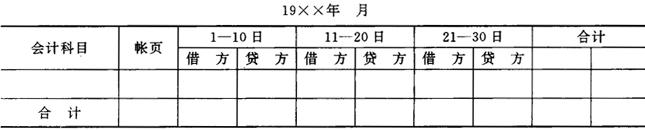 19××年 月
会计科目 帐页 1—10日 11—20日 21—30日 合计
借方 贷方 借方 贷方 借方 贷方
合计